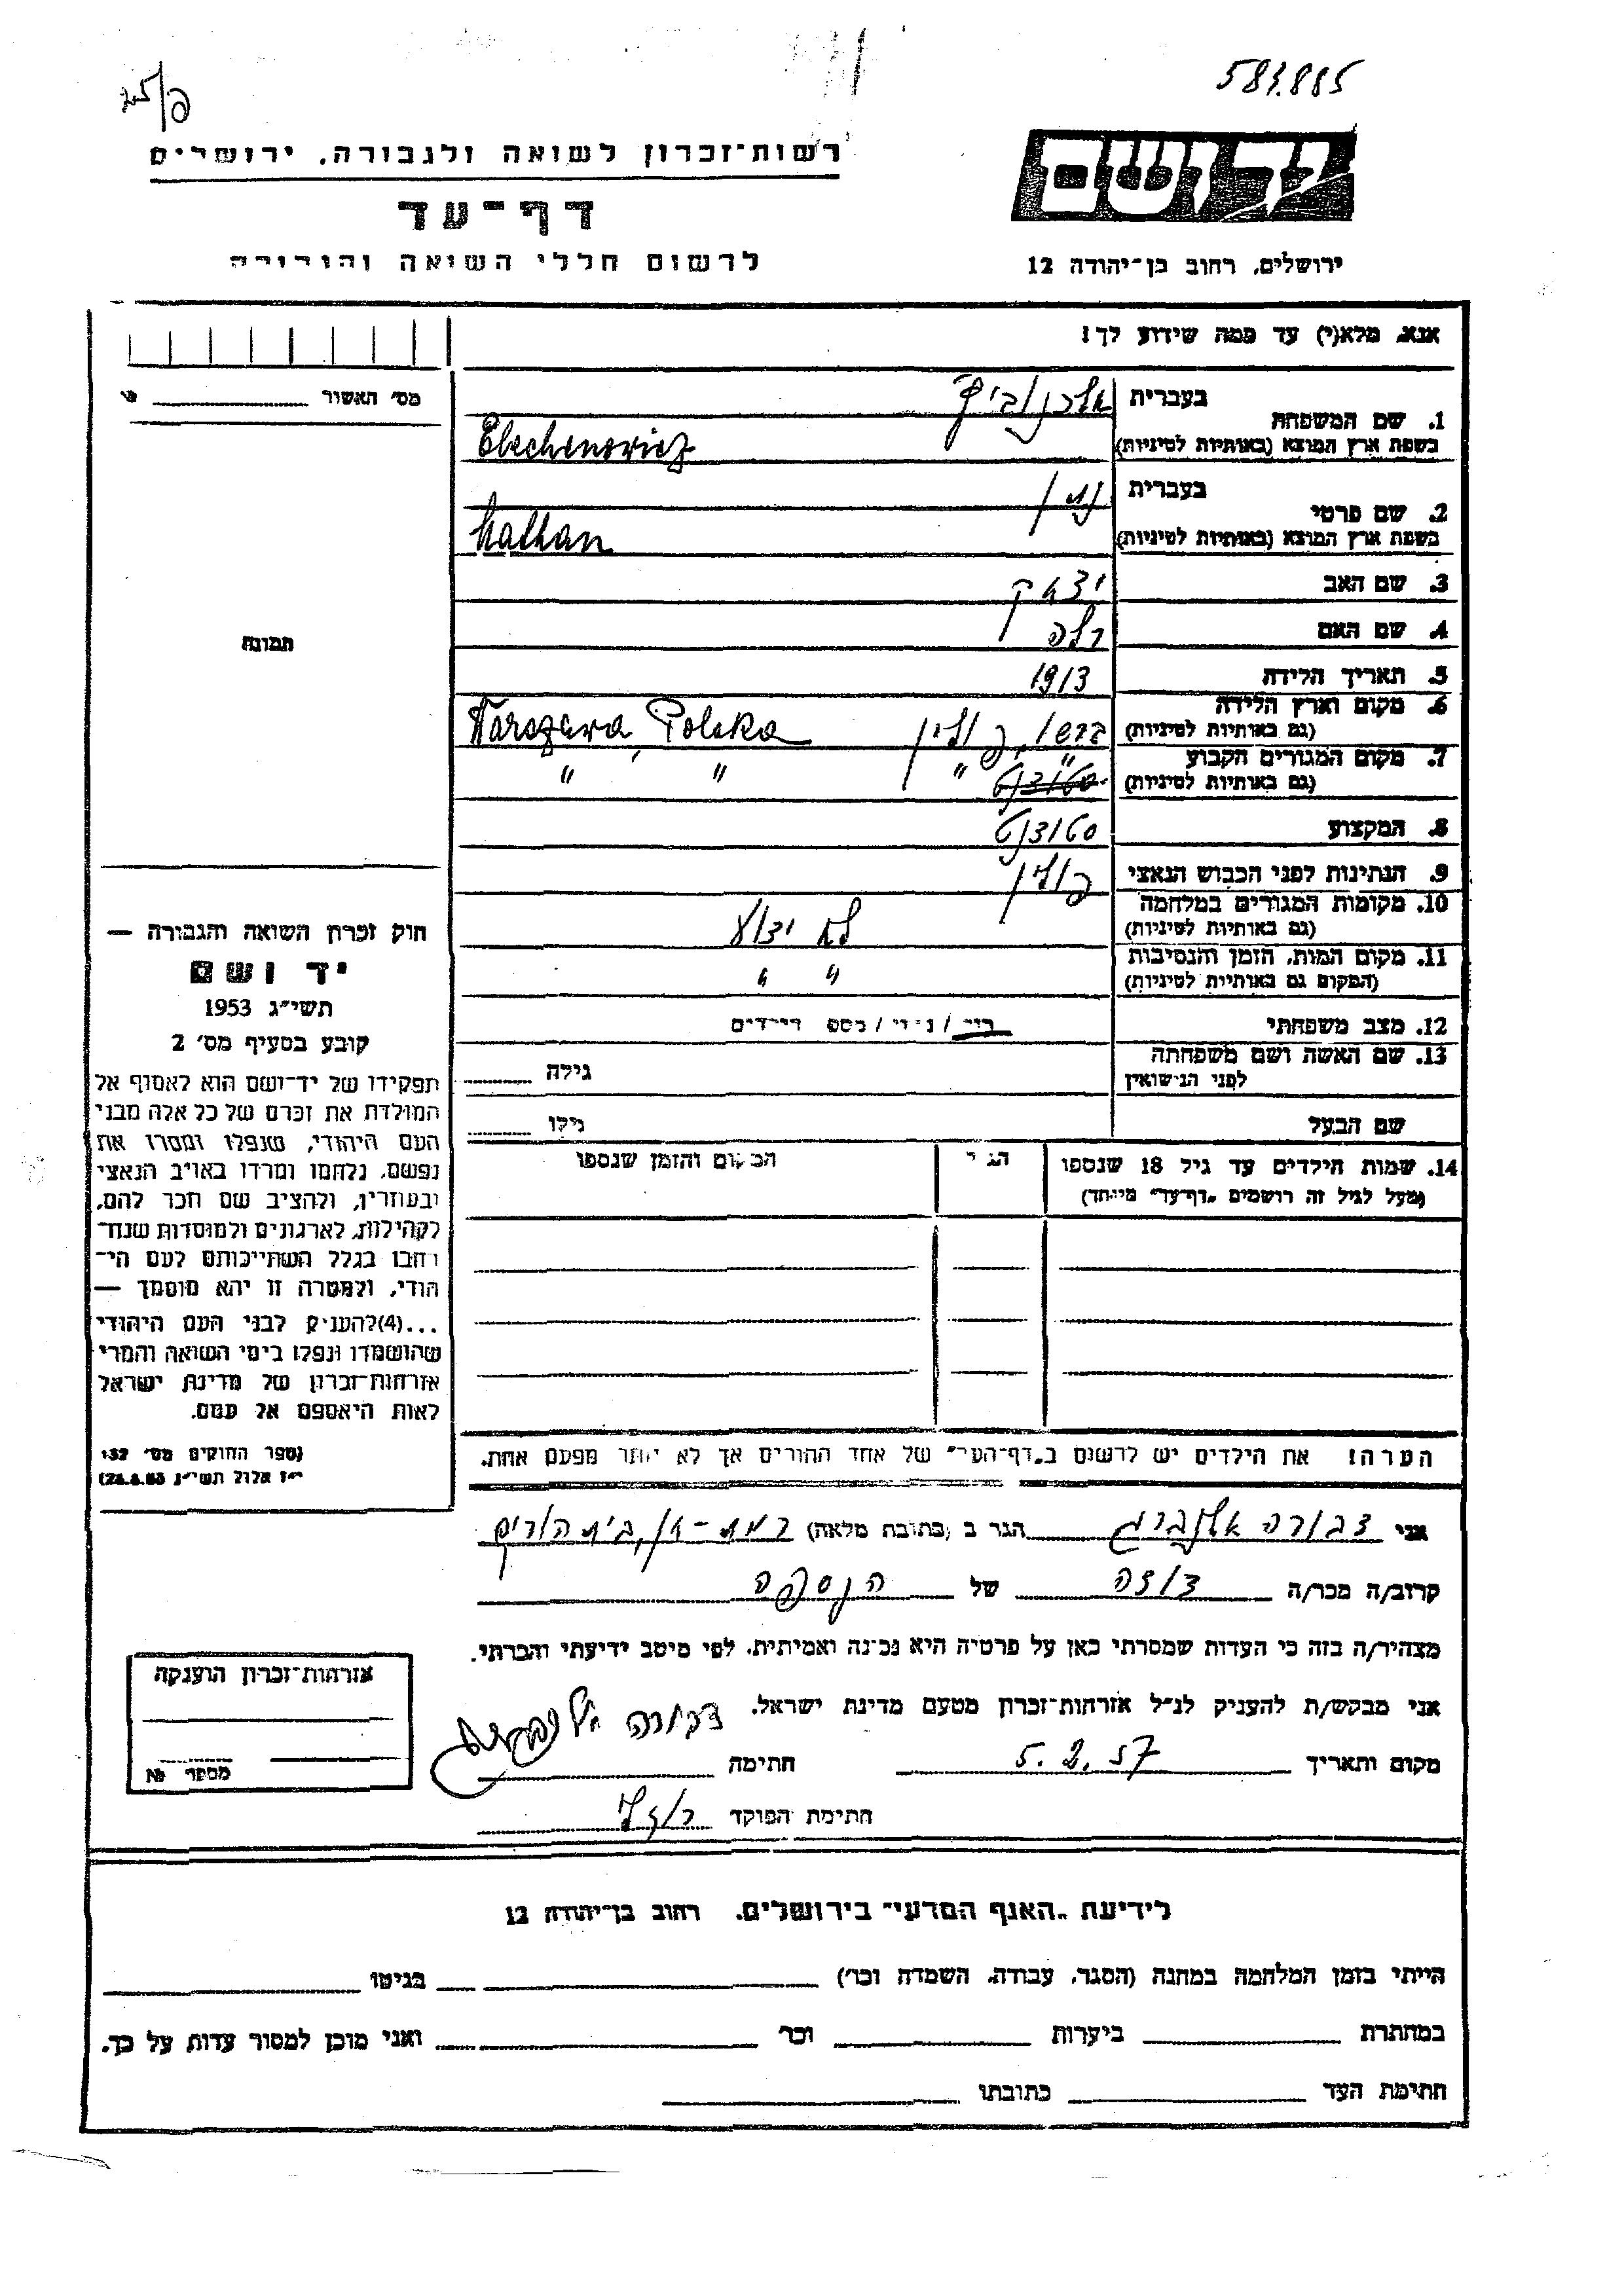 583.885
25/פ
רשות־זכרון לשואה ולגבורה, ירושלים
יד ושם
דף־עד
לרשום חללי השואה והגבורה
ירושלים, רחוב בן־יהודה 12
אנא, מלא(י) עד כמה שידוע לך!
מס׳ האשור
1. שם המשפחה בעברית
Elechenowicz
בשפת ארץ המוצא (באותיות לטיניות)
2. שם פרטי בעברית נתן
Nathan
בשפת ארץ המוצא (באותיות לטיניות)
3. שם האב יצחק
4. שם האם רלה
5. תאריך הלידה 1913
6. מקום וארץ הלידה
(גם באותיות לטיניות) ורשו, פולין Warszawa, Polska
7. מקום המגורים הקבוע
(גם באותיות לטיניות) " " " "
8. המקצוע סטודנט
9. הנתינות לפני הכבוש הנאצי פולין
10. מקומות המגורים במלחמה
(גם באותיות לטיניות) לא ידוע
11. מקום המות, הזמן והנסיבות
(המקום גם באותיות לטיניות) " "
12. מצב משפחתי רוק / נשוי / מספר הילדים
13. שם האשה ושם משפחתה
לפני הנישואין גילה
שם הבעל גילו
14. שמות הילדים עד גיל 18 שנספו הגיל המקום והזמן שנספו
(מעל לגיל זה רושמים „דף־עד" מיוחד)
הערה! את הילדים יש לרשום ב„דף־העד" של אחד ההורים אך לא יותר מפעם אחת.
תמונה
חוק זכרון השואה והגבורה —
יד ושם
תשי״ג 1953
קובע בסעיף מס׳ 2
תפקידו של יד־ושם הוא לאסוף אל
המולדת את זכרם של כל אלה מבני
העם היהודי, שנפלו ומסרו את
נפשם, נלחמו ומרדו באויב הנאצי
ובעוזריו, ולהציב שם וזכר להם,
לקהילות, לארגונים ולמוסדות שנח־
רבו בגלל השתייכותם לעם הי־
הודי, ולמטרה זו יהא מוסמך —
...(4)להעניק לבני העם היהודי
שהושמדו ונפלו בימי השואה והמרי
אזרחות־זכרון של מדינת ישראל
לאות היאספם אל עמם.
(ספר החוקים מס׳ 132
י״ז אלול תשי״ג 28.8.53)
אני דבורה הגר ב (כתובת מלאה) רמת־גן, בית הורים
קרוב/ה מכר/ה דודה של הנספה
מצהיר/ה בזה כי העדות שמסרתי כאן על פרטיה היא נכונה ואמיתית, לפי מיטב ידיעתי והכרתי.
אני מבקש/ת להעניק לנ״ל אזרחות־זכרון מטעם מדינת ישראל.
מקום ותאריך 5.2.57 חתימה דבורה
חתימת הפוקד
אזרחות־זכרון הוענקה
מספר №
לידיעת „האגף המדעי" בירושלים, רחוב בן־יהודה 12
הייתי בזמן המלחמה במחנה (הסגר, עבודה, השמדה וכו׳) בגיטו
במחתרת ביערות וכו׳ ואני מוכן למסור עדות על כך.
חתימת העד כתובתו